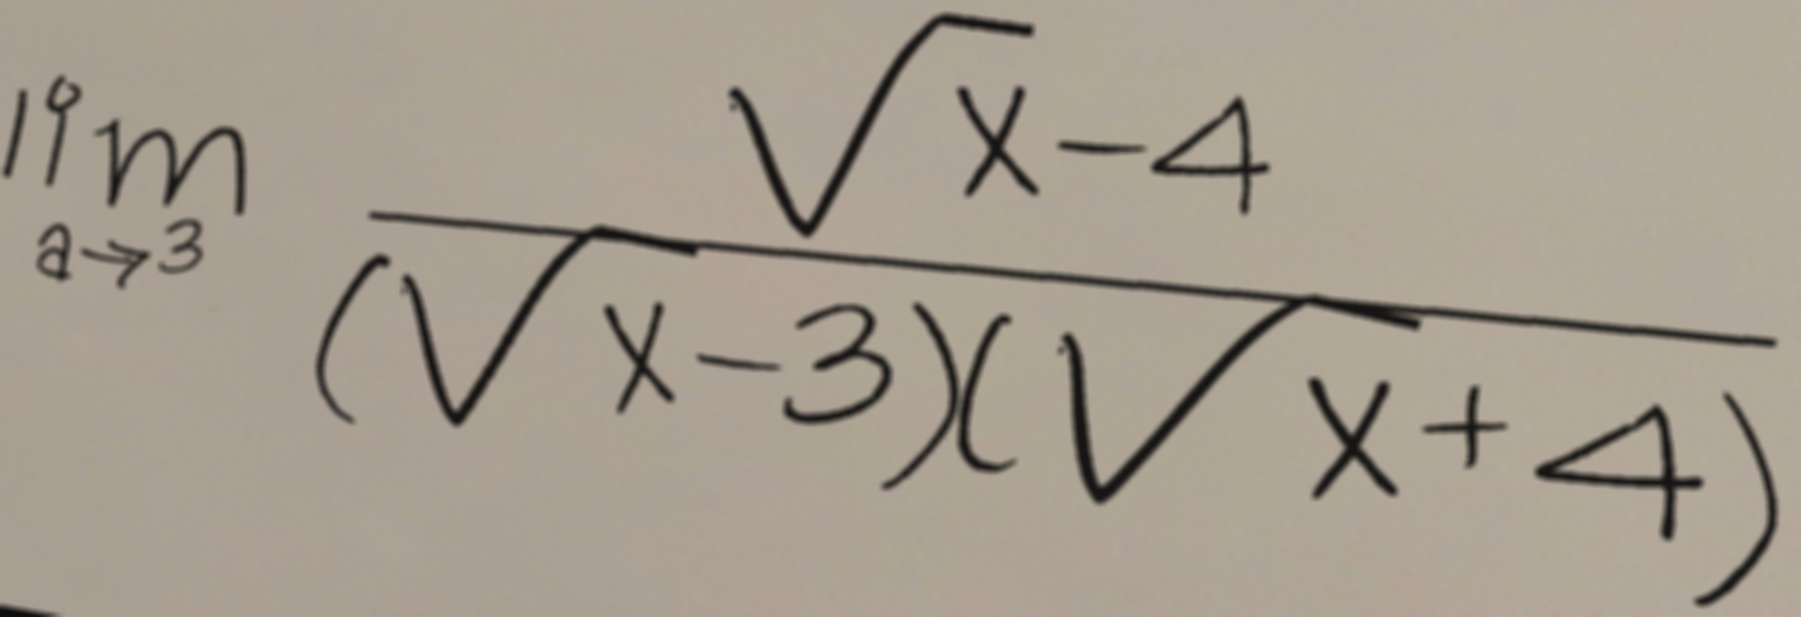 lim a→3 (√x-4)/((√x-3)(√x+4))